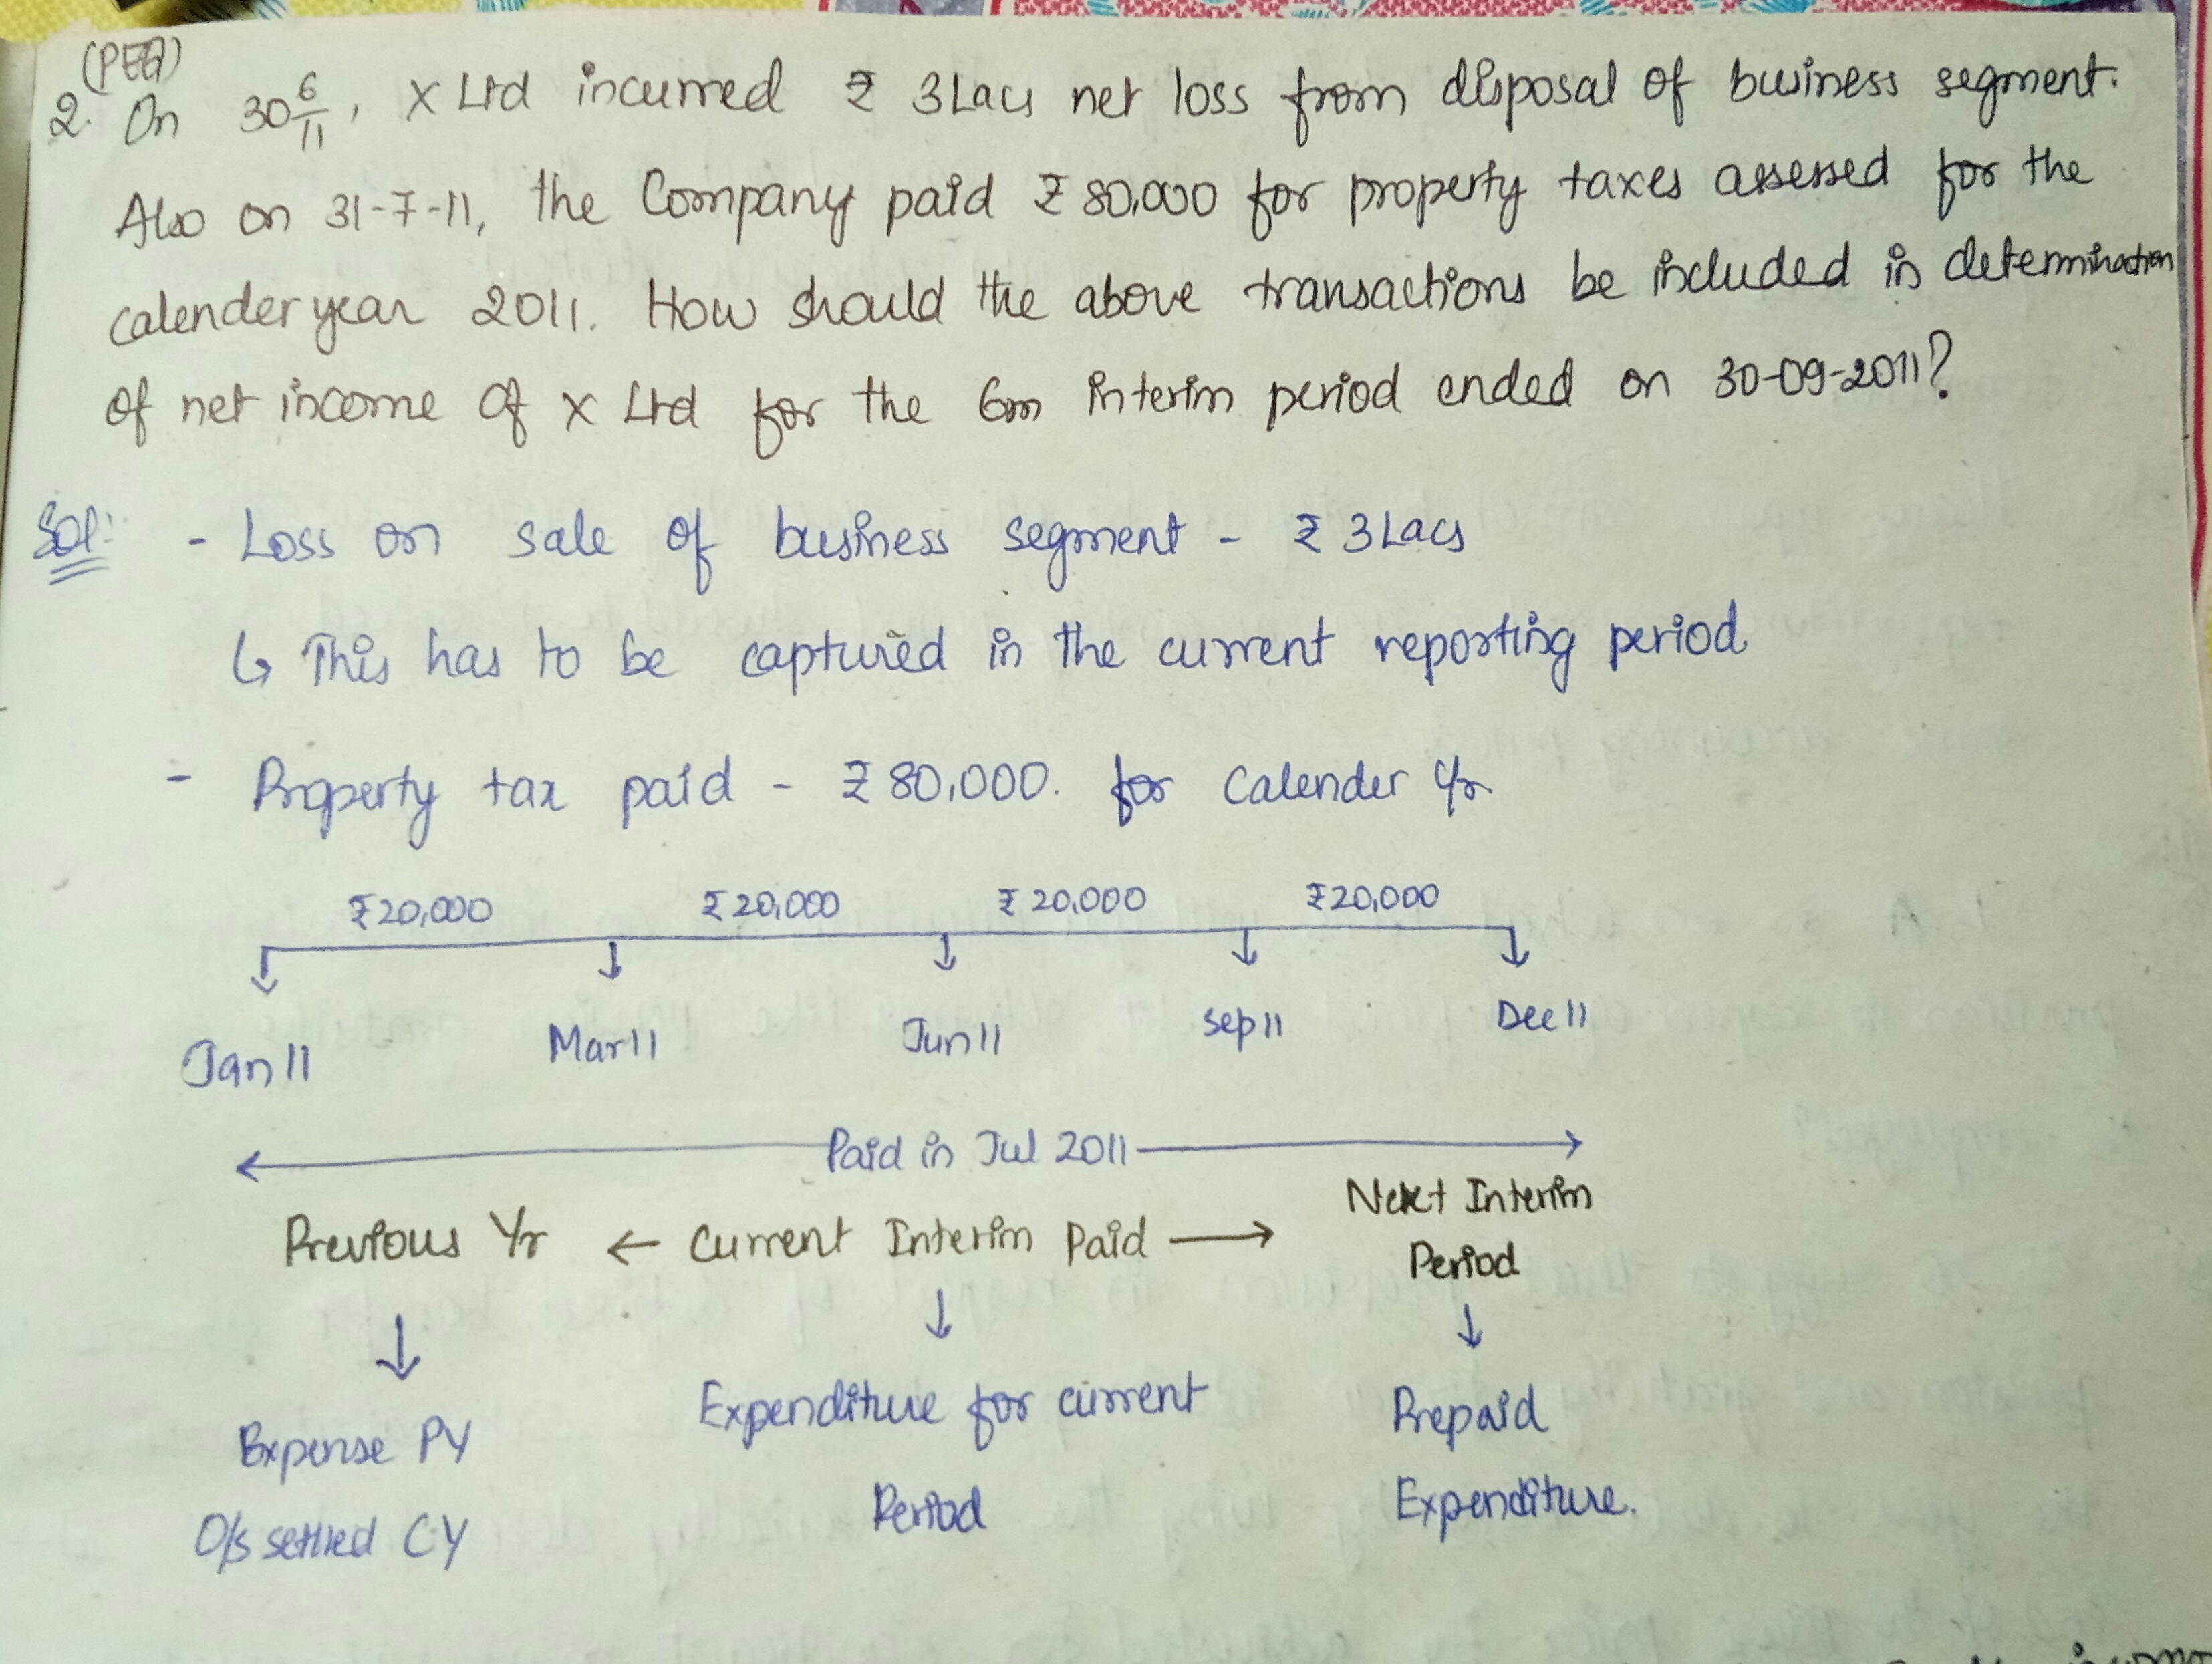 (PEQ)
2. On 30 6/11, X Ltd incurred ₹ 3Lacs net loss from disposal of business segment.
Also on 31-7-11, the Company paid ₹ 80,000 for property taxes assessed for the
calender year 2011. How should the above transactions be included in determination
of net income of X Ltd for the 6m interim period ended on 30-09-2011?
Sol:- - Loss on sale of business segment - ₹ 3Lacs
↳ This has to be captured in the current reporting period
- Property tax paid - ₹ 80,000. for Calender Yr
₹20,000 ₹20,000 ₹20,000 ₹20,000
Jan 11 Mar 11 Jun 11 Sep 11 Dec 11
← Paid in Jul 2011 →
Previous Yr ← Current Interim Paid → Next Interim
Period
↓ ↓ ↓
Expense PY Expenditure for current Prepaid
O/s settled CY Period Expenditure.